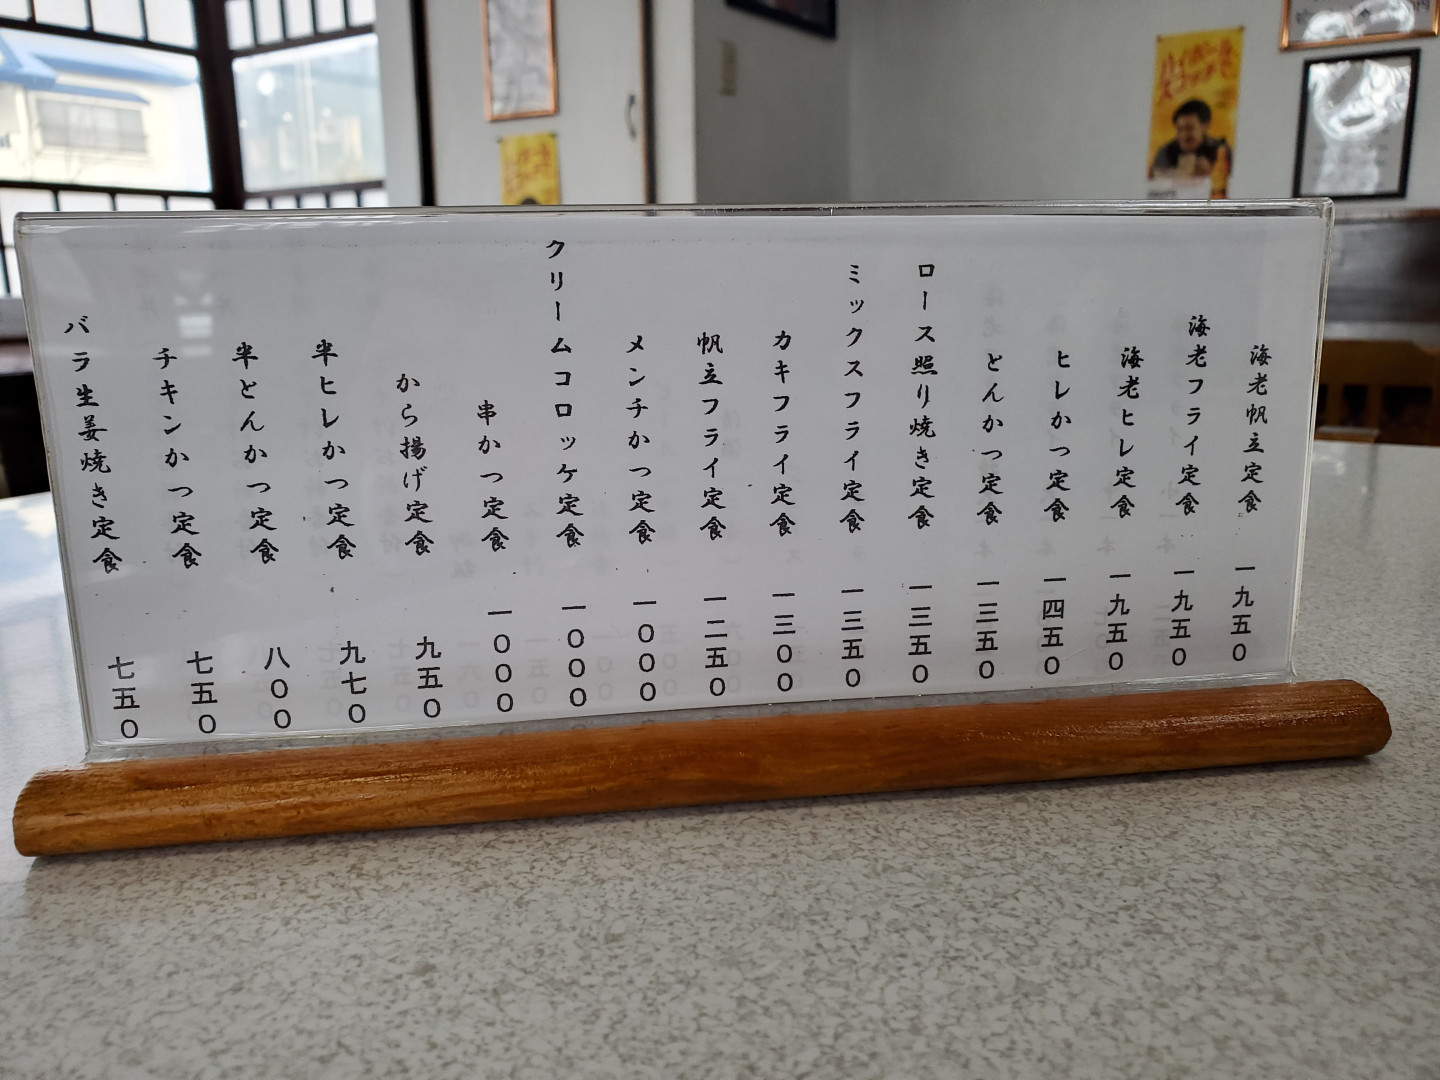 海老帆立定食 一九五〇
海老フライ定食 一九五〇
海老ヒレ定食 一九五〇
ヒレかつ定食 一四五〇
とんかつ定食 一三五〇
ロース照り焼き定食 一三五〇
ミックスフライ定食 一三五〇
カキフライ定食 一三〇〇
帆立フライ定食 一二五〇
メンチかつ定食 一〇〇〇
クリームコロッケ定食 一〇〇〇
串かつ定食 一〇〇〇
から揚げ定食 九五〇
半ヒレかつ定食 九七〇
半とんかつ定食 八〇〇
チキンかつ定食 七五〇
バラ生姜焼き定食 七五〇